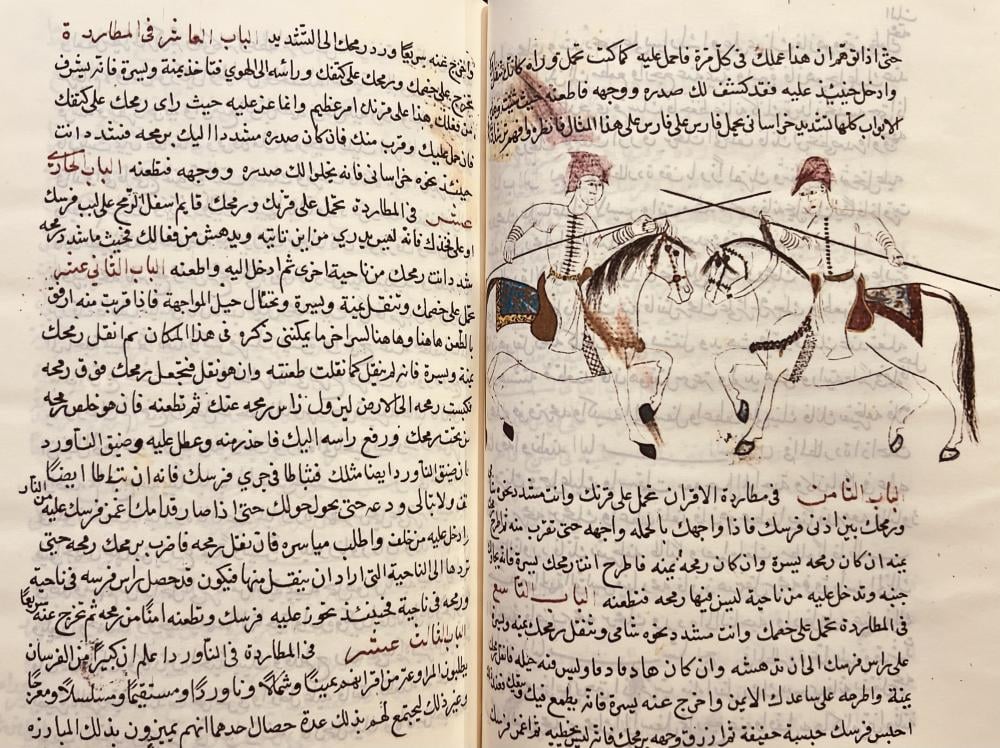 حتى اذا توهم ان هذا عملك فى كل مرة فاحمل عليه كما كنت تحمل وراه
وادخل حينئذ عليه فقد كشف لك صدره ووجهه فاطعنه حيث شئت
الابواب كلها تشديد خراسانى يحمل فارس على فارس على هذا المثال فانظره وافهم
الباب الثامن فى مطاردة الاقران تحمل على قرنك وانت مشدد نحوه
ورمحك بين اذنى فرسك فاذا واجهك بالحمله واجهه حتى تقرب منه
يمنه ان كان رمحه يسرة وان كان رمحه يمنه فاطرح انت رمحك يسرة فانه
جنبه وتدخل عليه من ناحية ليس فيها رمحه فتطعنه الباب التاسع
فى المطاردة تحمل على خصمك وانت مشدد نحوه شامى وتنقل رمحك يمنه
على راس فرسك الى ان تدهشه وان كان هادفا وليس فيه حيله
يمنة واطرحه على ساعدك الايمن واخرج عنه يسرة فانه يطمع فيك
احبس فرسك حبسة خفيفة وجهه برمحك فانه ليس يخطيه
واخرج عنه سريعا ورد رمحك الى التشديد الباب العاشر فى المطاردة
تخرج على خصمك ورمحك على كتفك وراسه الى الهوى فتاخذ يمنة ويسرة فانه
من فعلك هذا على قرنك امر عظيم حيث راى رمحك على كتفك
فان حمل عليك وقرب منك فان كان صدره مشددا اليك برمحه فشدد انت
حينئذ نحوه خراسانى فانه يخلو لك صدره ووجهه فتطعنه الباب الحادى
عشر فى المطاردة تحمل على قرنك ورمحك قايم اسفل الرمح على لبب فرسك
او على فخذك فانه ليس يدرى من اين تاتيه ويدهش من فعالك فحيث ما شدد رمحه
شدد انت رمحك من ناحية اخرى ثم ادخل اليه واطعنه الباب الثانى عشر
تحمل على خصمك وتنقل يمنة ويسرة وتحتال حيل المواجهة فاذا قربت منه
بالطعن هاهنا وهاهنا ما يمكننى ذكره فى هذا المكان ثم انقل رمحك
يمنة ويسرة فانه لم ينقل كما نقلت طعنته وان هو نقل فتجعل رمحك فوق رمحه
فكبست رمحه الى الارض ليزول راس رمحه عنك ثم تطعنه فان هو خلص رمحه
من تحت رمحك ورفع راسه اليك فاحذر منه وعطل عليه وضيق الناورد
فان ضيق الناورد ايضا مثلك فتباطا فى جرى فرسك فانه ان تباطا ايضا
فقف ولا تبالى ودعه حتى يحول حولك حتى اذا صار قدامك اغمز فرسك عليه من النار
وادخل عليه من خلف واطلب مياسره فان نقل رمحه فاضرب برمحك رمحه حتى
تردها الى الناحية التى اراد ان ينقل منها فيكون قد حصل راس فرسه فى ناحية
ورمحه فى ناحية فحينئذ تحوز عليه فرسك وتطعنه امنا من رمحه ثم تخرج عنه سريعا
الباب الثالث عشر فى المطاردة فى الناورد اعلم ان كثيرا من الفرسان
يطلبون من اقرانهم يمينا وشمالا وناوردا ومستقيما ومسلسلا ومعرجا
وغير ذلك ليجتمع لهم بذلك عدة خصال احدها انهم يميزون بذلك المبارزه